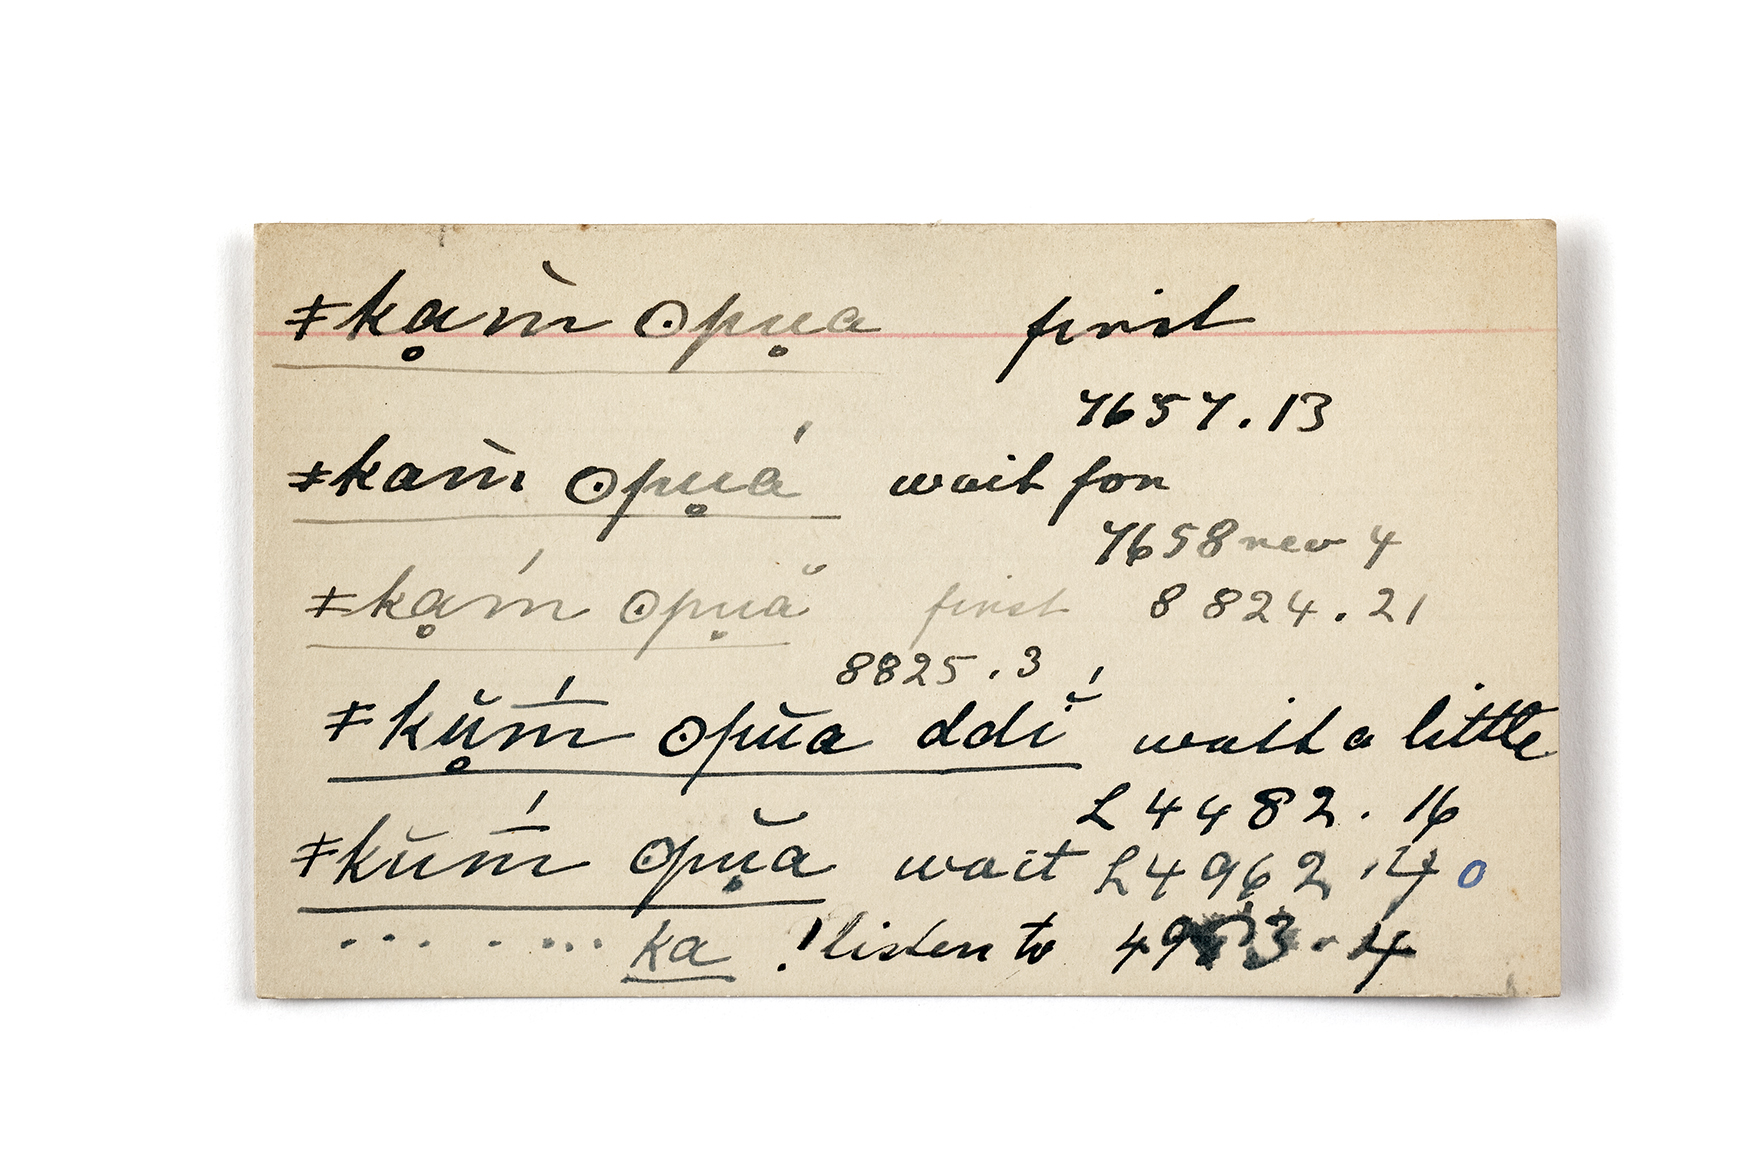 ǂkḁm̀ ʘpu̥a first
7657.13
ǂkam̀ ʘpu̥á wait for
7658 rev 4
ǂkḁḿ ʘpu̥ă first 8824.21
8825.3
ǂkŭ̥m̄́ ʘpŭa ddĭ́ wait a little
L4482.16
ǂkŭm̄́ ʘpŭ̥a wait L4962.
... . ... ka ! listen to